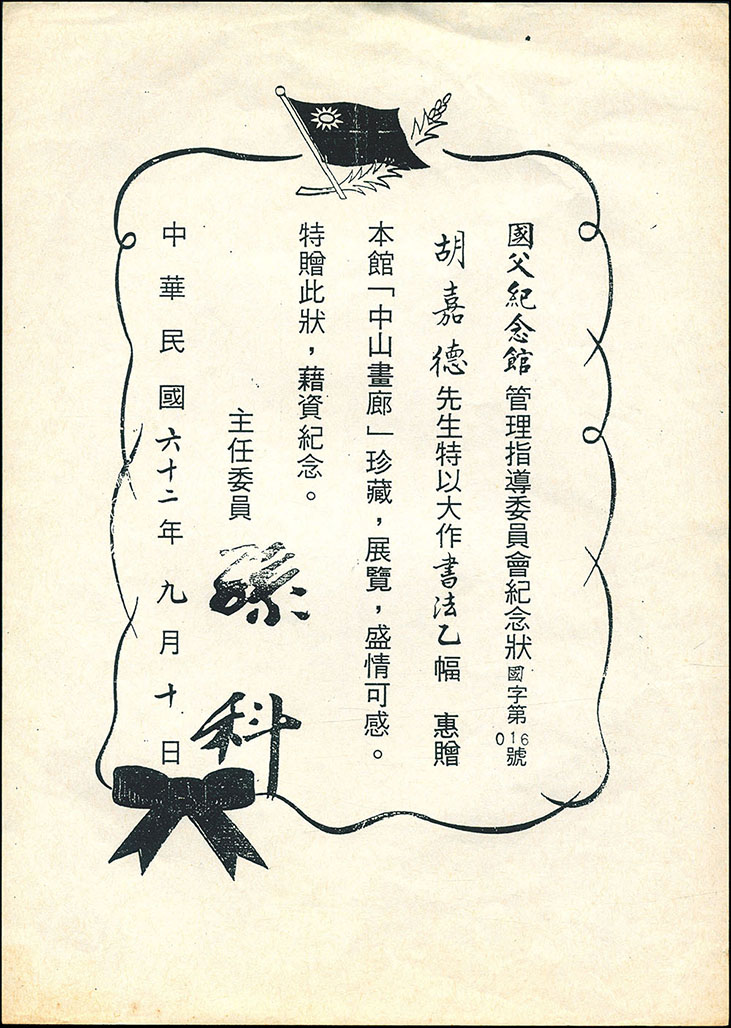 國父紀念館管理指導委員會紀念狀 國字第016號
胡嘉德先生特以大作書法乙幅 惠贈
本館「中山畫廊」珍藏，展覽，盛情可感。
特贈此狀，藉資紀念。
主任委員 孫科
中華民國六十二年九月十日